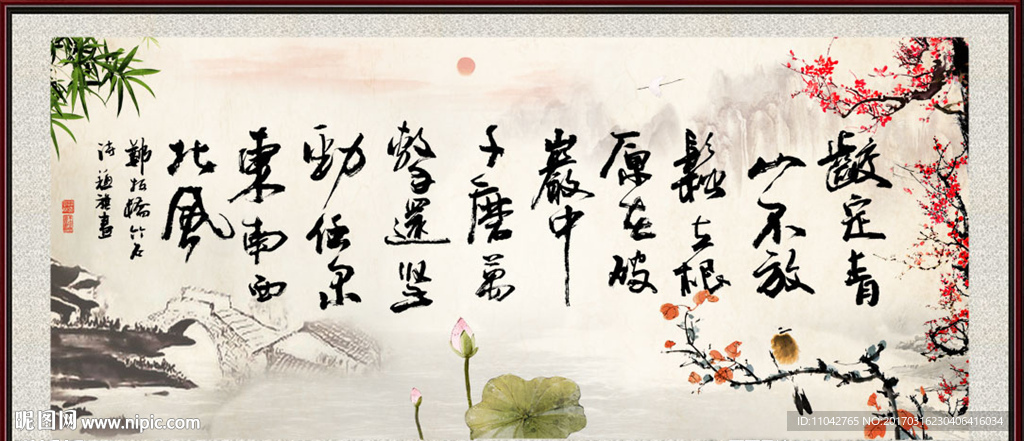 齩定青
山不放
鬆立根
原在破
巖中
千磨萬
擊還坚
勁任尔
東南西
北風
鄭板橋竹石
詩
昵图网 www.nipic.com
ID:11042765 NO:20170316230406416034